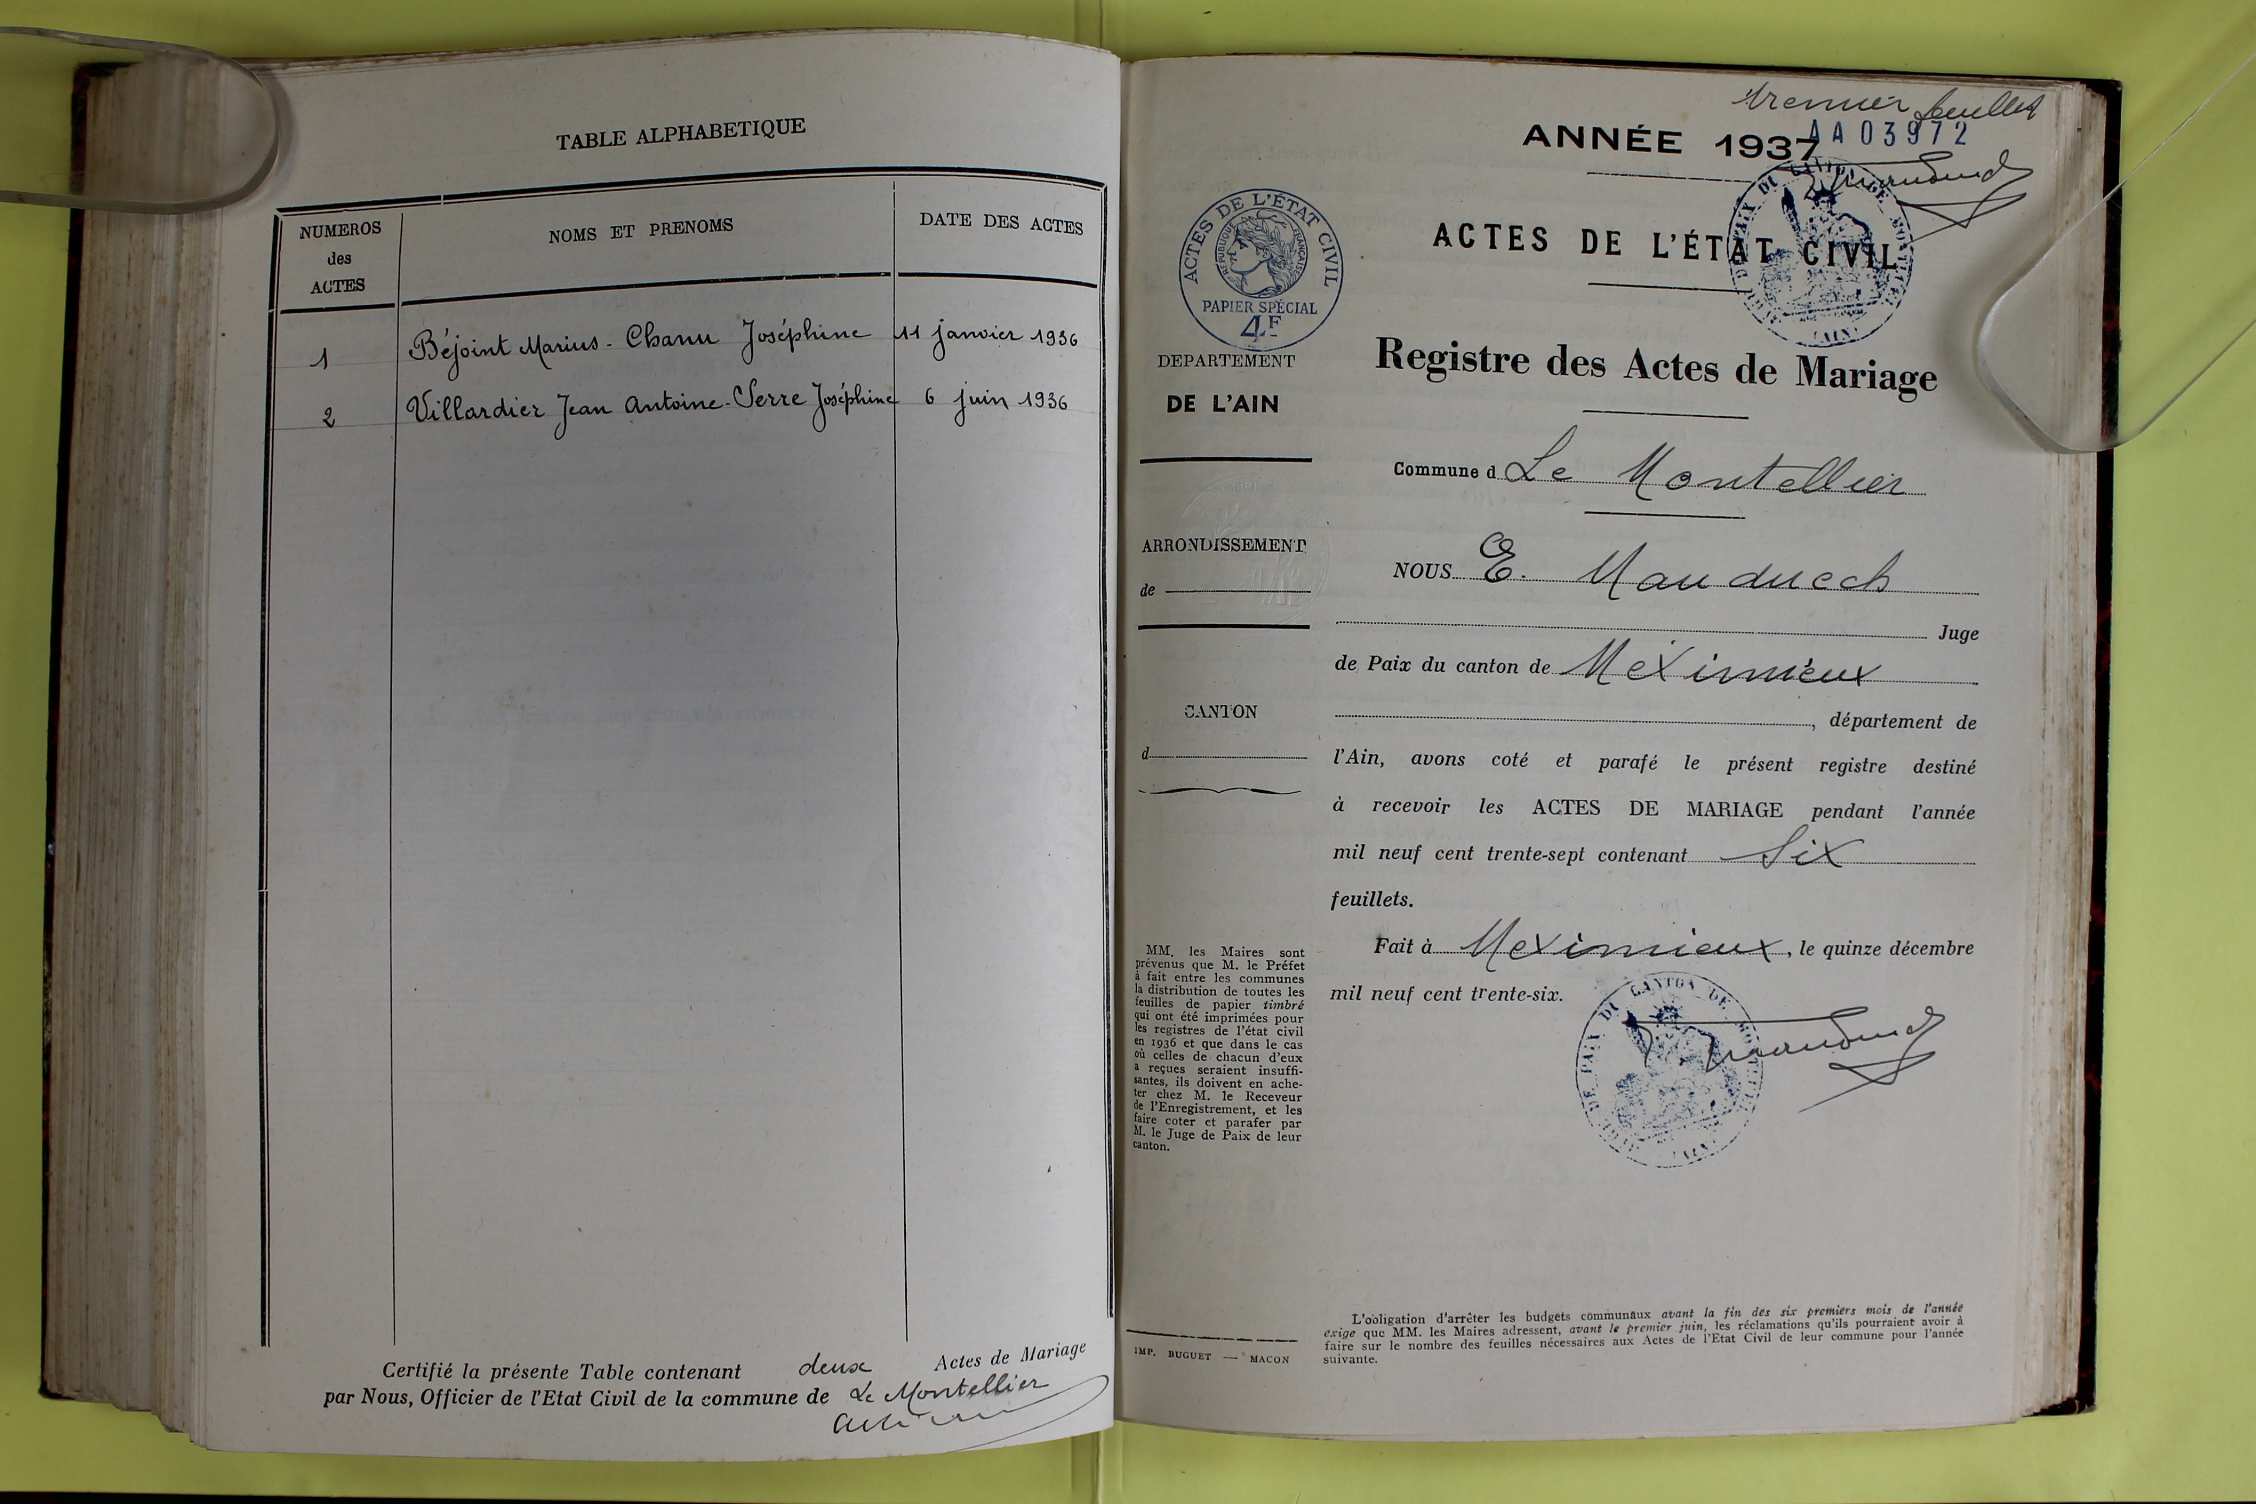 TABLE ALPHABETIQUE
NUMEROS
des
ACTES
NOMS ET PRENOMS
DATE DES ACTES
1 Béjoint Marius - Chanu Joséphine 11 janvier 1936
2 Villardier Jean Antoine - Serre Joséphine 6 juin 1936
Certifié la présente Table contenant deux Actes de Mariage
par Nous, Officier de l'Etat Civil de la commune de Le Montellier
Premier feuillet
AA03972
ANNÉE 1937
ACTES DE L'ÉTAT CIVIL
RÉPUBLIQUE FRANÇAISE
PAPIER SPÉCIAL
4F
ACTES DE L'ÉTAT CIVIL
DE PAIX DU CANTON DE
AIN
Registre des Actes de Mariage
DEPARTEMENT
DE L'AIN
Commune d Le Montellier
ARRONDISSEMENT
de
NOUS E. Mauduech
Juge
de Paix du canton de Meximieux
CANTON
d
, département de
l'Ain, avons coté et parafé le présent registre destiné
à recevoir les ACTES DE MARIAGE pendant l'année
mil neuf cent trente-sept contenant Six
feuillets.
Fait à Meximieux, le quinze décembre
mil neuf cent trente-six.
DE PAIX DU CANTON DE
AIN
MM. les Maires sont
prévenus que M. le Préfet
à fait entre les communes
la distribution de toutes les
feuilles de papier timbré
qui ont été imprimées pour
les registres de l'état civil
en 1936 et que dans le cas
où celles de chacun d'eux
a reçues seraient insuffi-
santes, ils doivent en ache-
ter chez M. le Receveur
de l'Enregistrement, et les
faire coter et parafer par
M. le Juge de Paix de leur
canton.
IMP. BUGUET — MACON
L'obligation d'arrêter les budgets communaux avant la fin des six premiers mois de l'année
exige que MM. les Maires adressent, avant le premier juin, les réclamations qu'ils pourraient avoir à
faire sur le nombre des feuilles nécessaires aux Actes de l'Etat Civil de leur commune pour l'année
suivante.